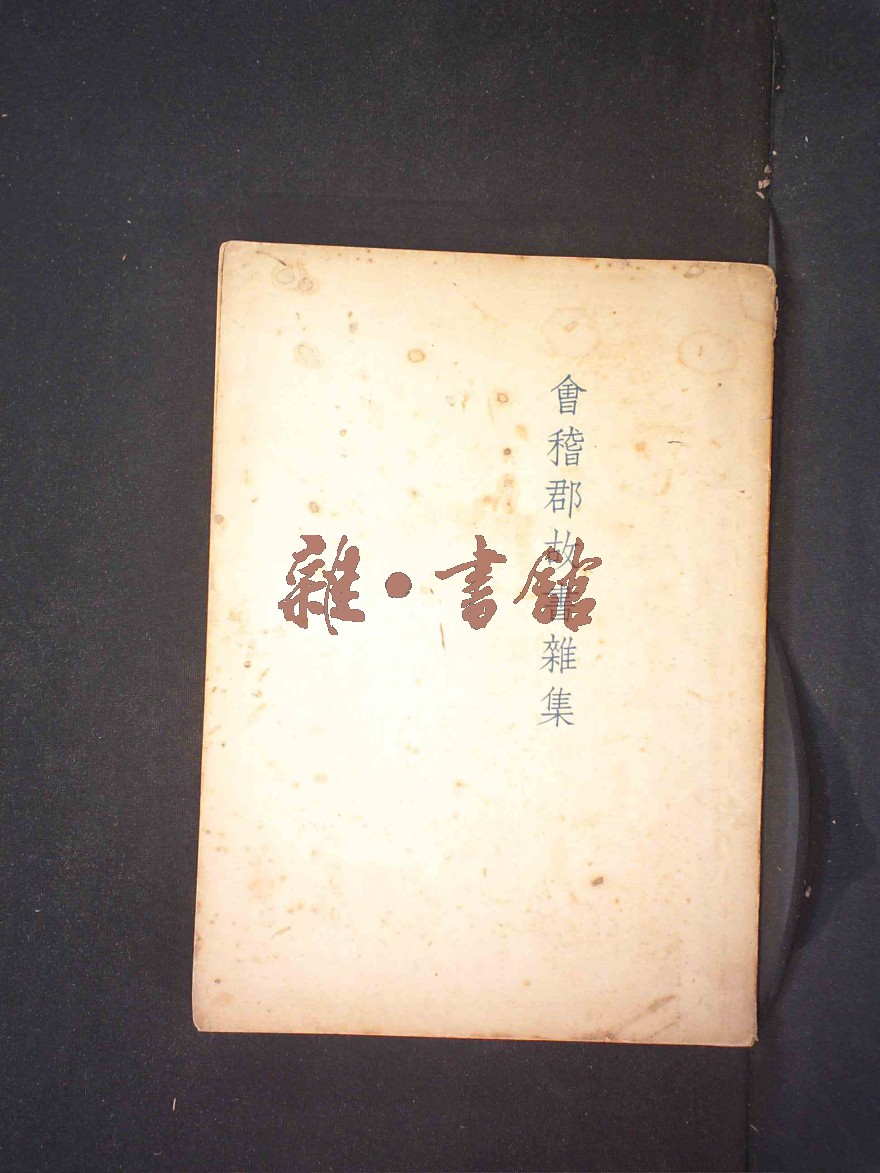 會稽郡故書雜集
雜·書館